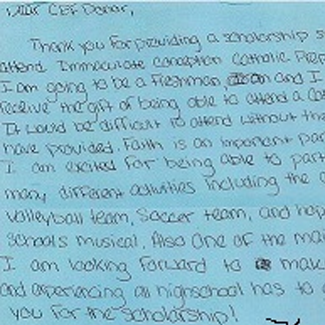 Dear CEF Donor,
Thank you for providing a scholarship s
attend Immaculate Conception Catholic Prep
I am going to be a freshman, and I
receive the gift of being able to attend a Cat
It would be difficult to attend without the
have provided. Faith is an important par
I am excited for being able to part
many different activities including the
volleyball team, soccer team, and hop
schools musical. Also one of the mai
I am looking forward to mak
and experiencing all highschool has to
you for the scholarship!